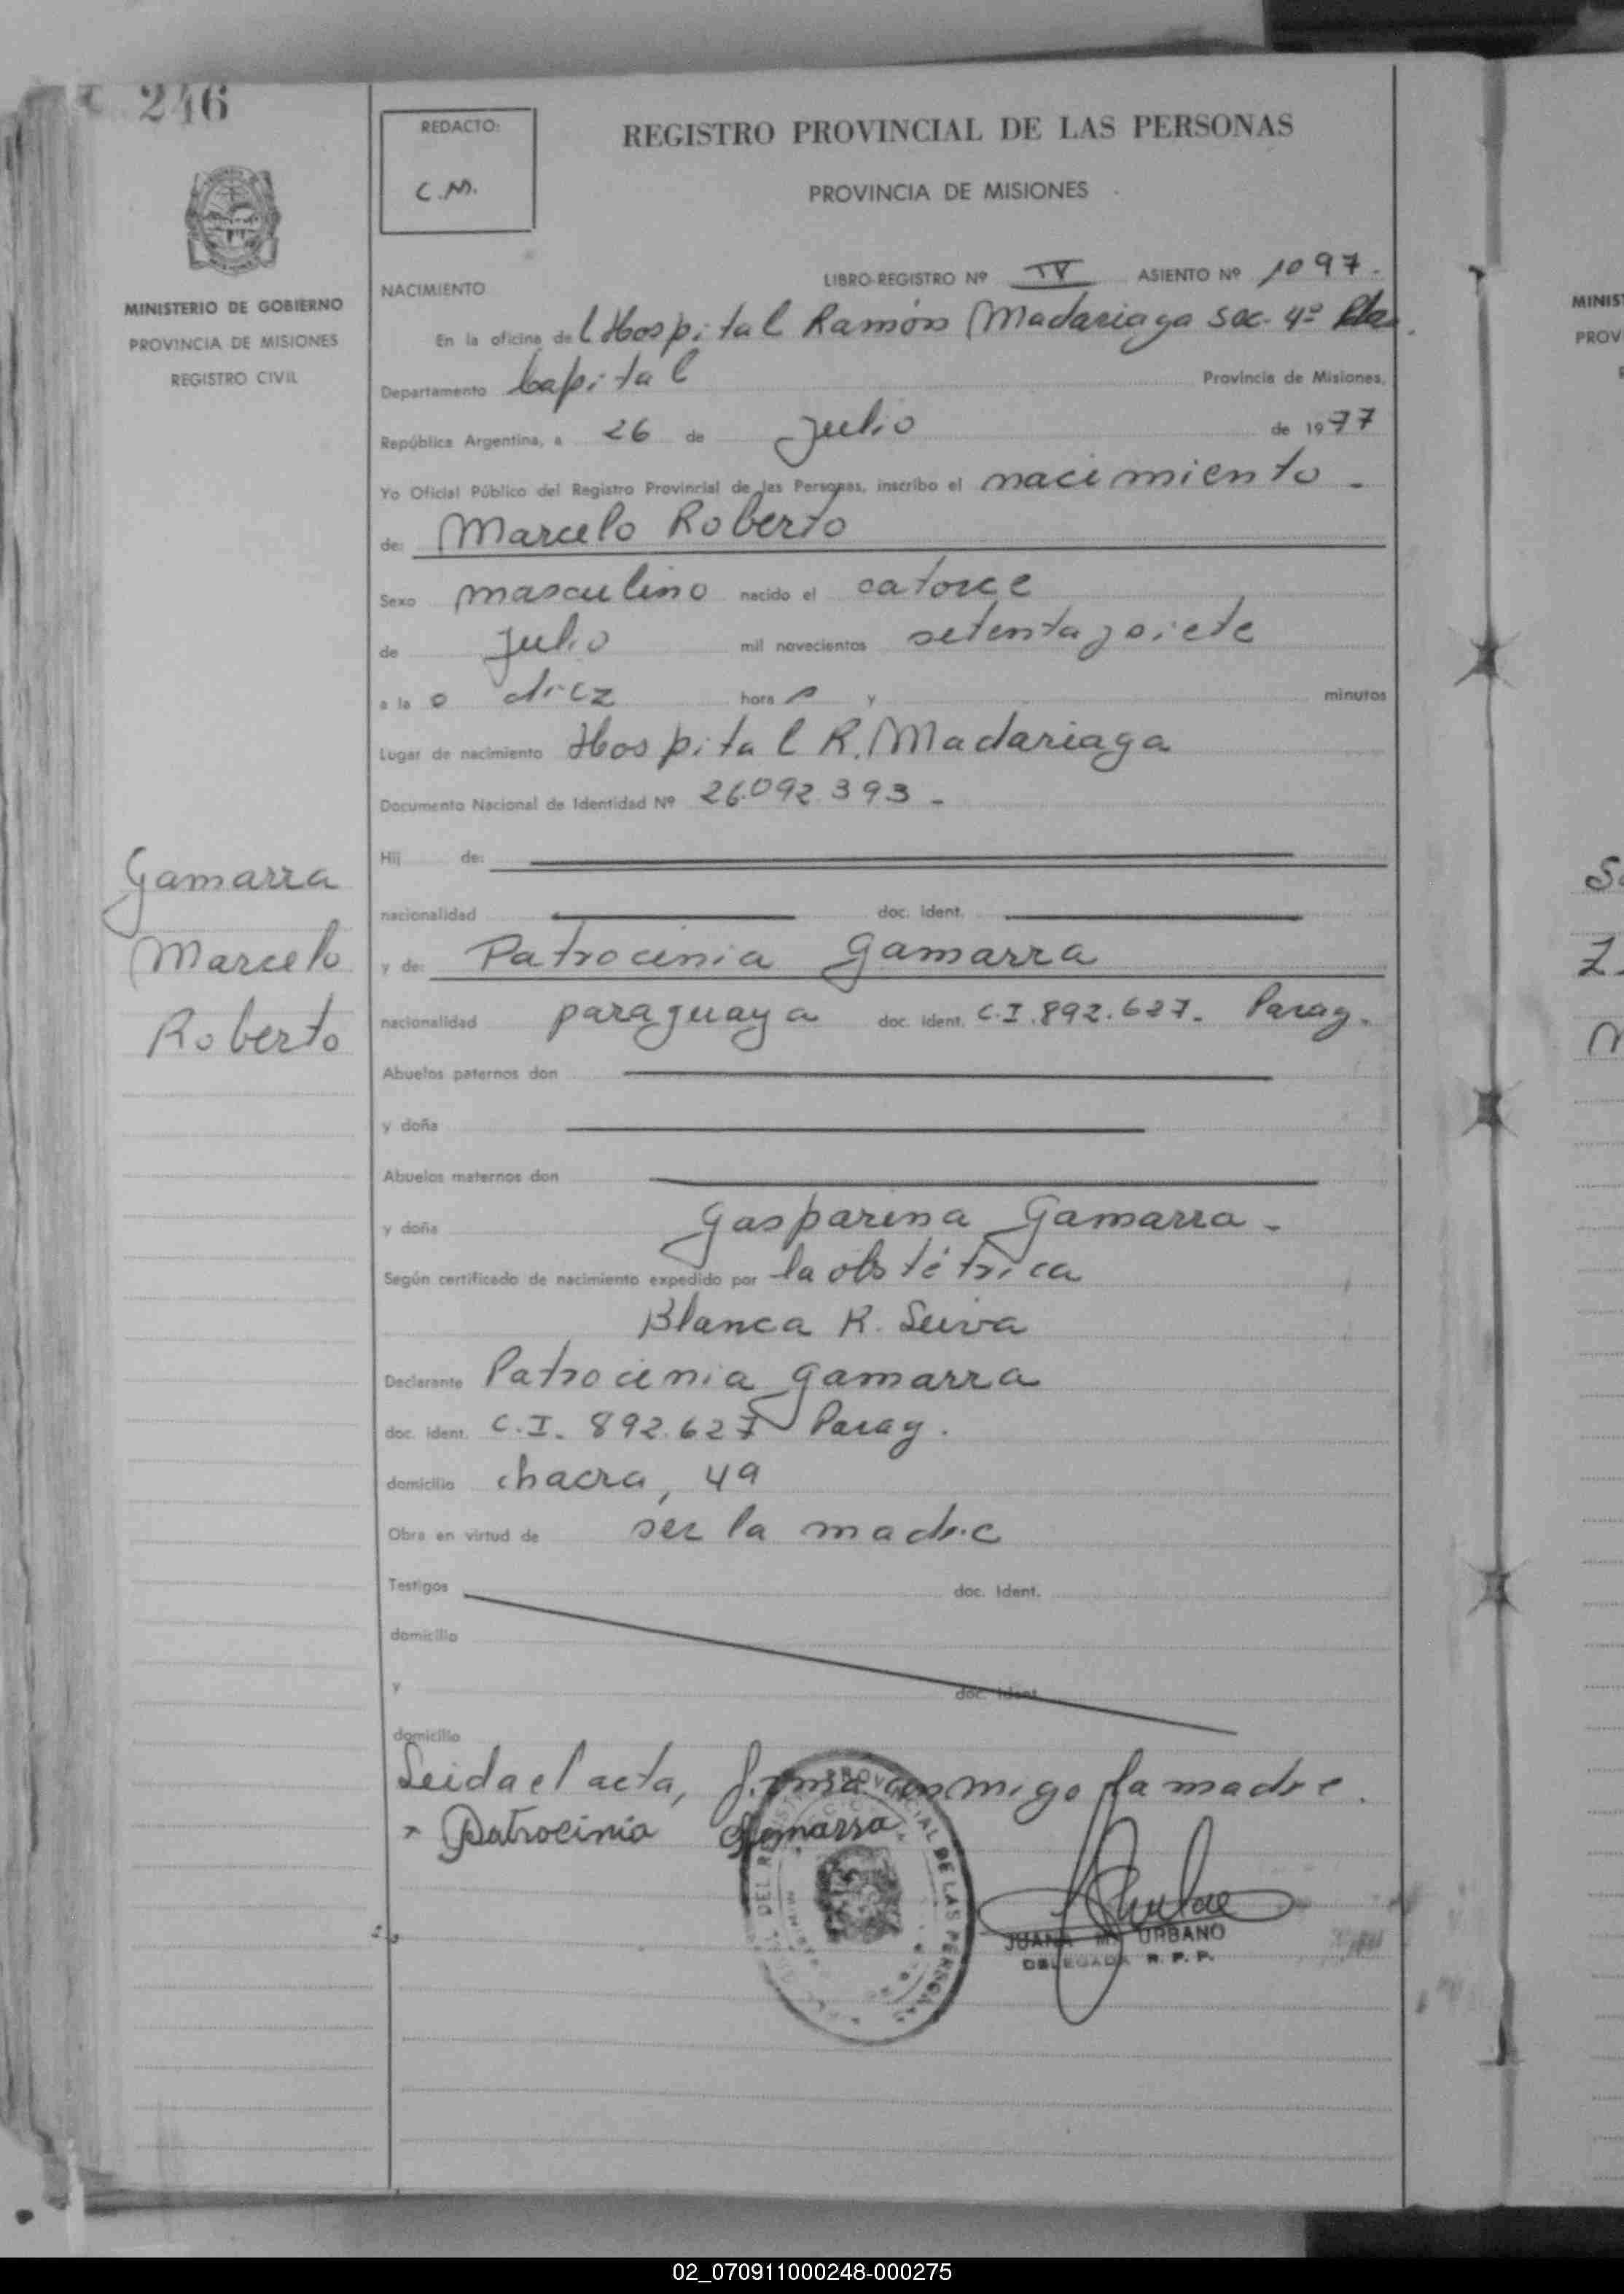 246
REDACTO:
C.M.
REGISTRO PROVINCIAL DE LAS PERSONAS
PROVINCIA DE MISIONES
MINISTERIO DE GOBIERNO
PROVINCIA DE MISIONES
REGISTRO CIVIL
NACIMIENTO LIBRO-REGISTRO Nº IV ASIENTO Nº 1097.
En la oficina del Hospital Ramón Madariaga Sec. 4º
Departamento Capital Provincia de Misiones,
República Argentina, a 26 de Julio de 1977
Yo Oficial Público del Registro Provincial de las Personas, inscribo el nacimiento.
de: Marcelo Roberto
Sexo masculino nacido el catorce
de Julio mil novecientos setenta y siete
a las diez horas y minutos
Lugar de nacimiento Hospital R. Madariaga
Documento Nacional de Identidad Nº 26.092.393-
Hij de:
nacionalidad doc. ident.
Gamarra
Marcelo
Roberto
y de: Patrocinia Gamarra
nacionalidad paraguaya doc. ident. C.I. 892.627- Parag.
Abuelos paternos don
y doña
Abuelos maternos don
y doña Gasparina Gamarra-
Según certificado de nacimiento expedido por la obstétrica
Blanca R.
Declarante Patrocinia Gamarra
doc. ident. C.I. 892.627 Parag.
domicilio chacra, 49
Obra en virtud de ser la madre
Testigos doc. Ident.
domicilio
y doc. Ident.
domicilio
Leida el acta, firma conmigo la madre.
Patrocinia Gamarra
DEL REGISTRO PROVINCIAL DE LAS PERSONAS
JUANA M. URBANO
DELEGADA R. P. P.
MINIS
PROV
02_070911000248-000275